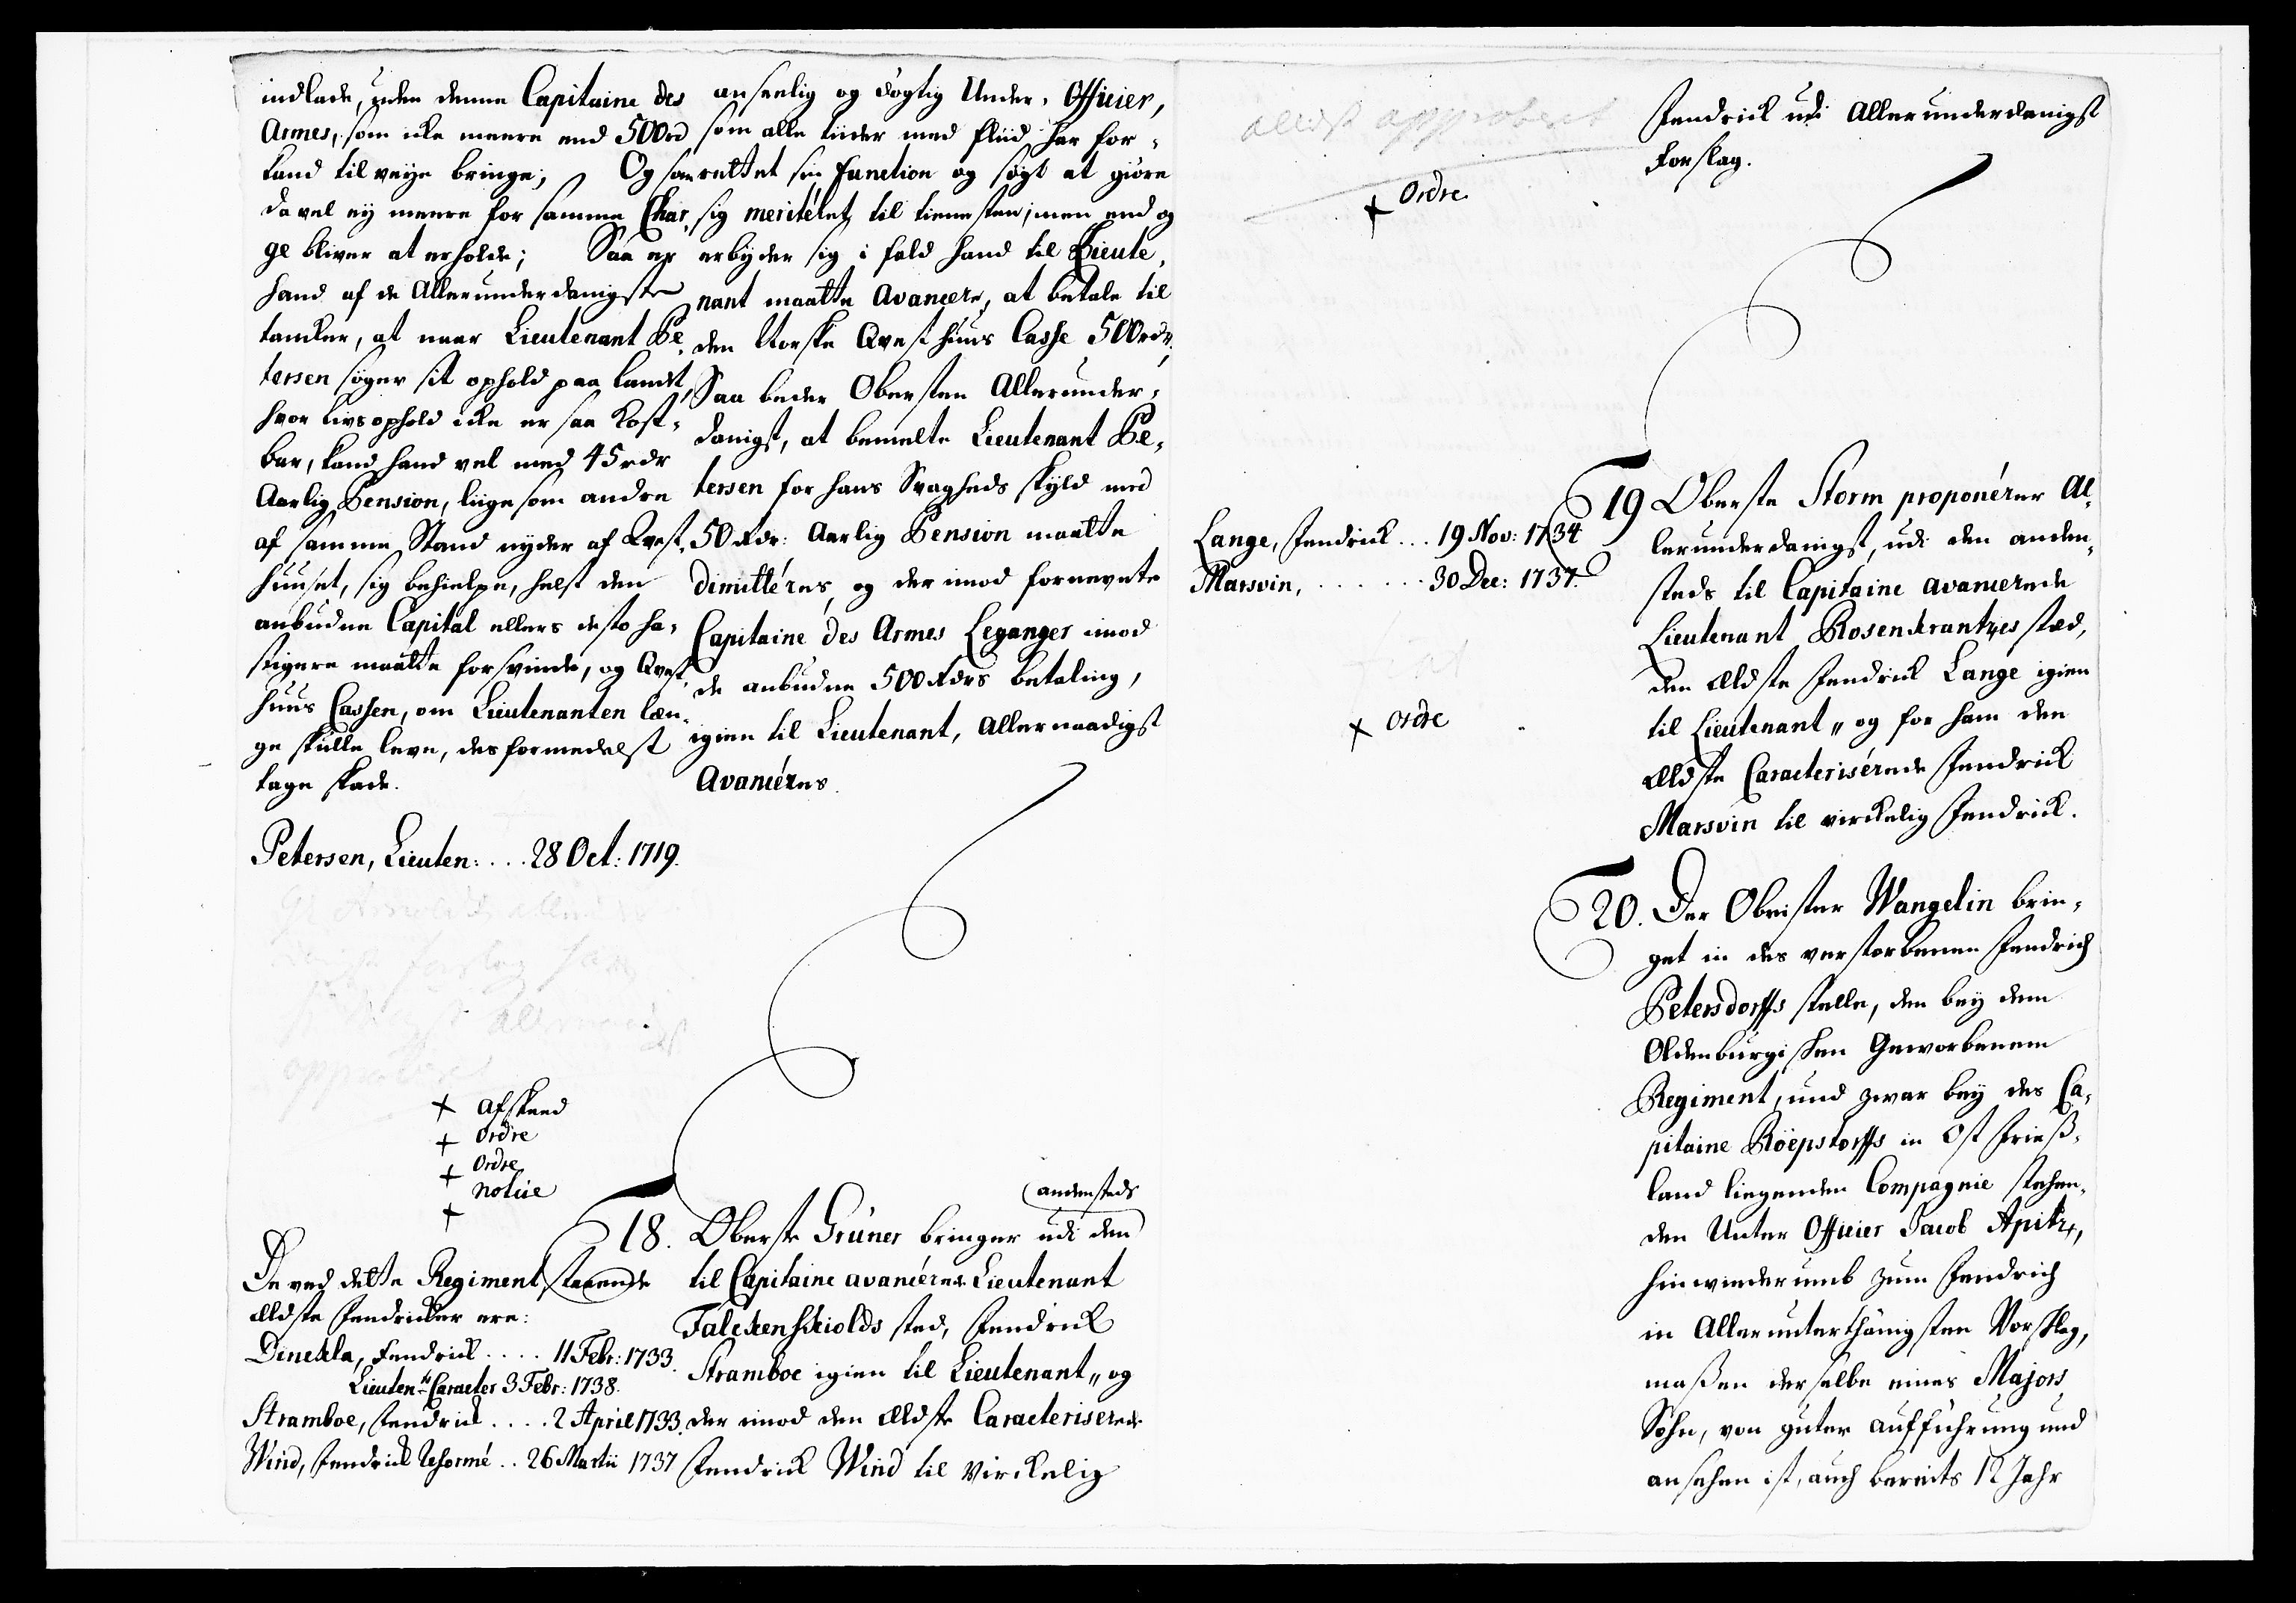 indlade, uden denne Capitaine des
Armes, som icke meere end 500 rd
kand til veye bringe; Og som
da vel ey meere for samme Char-
ge bliver at erholde; Saa er
hand af de Allerunderdanigste
tancker, at naar Lieutenant Pe-
tersen søger sit ophold paa landet,
hvor livsophold icke er saa kost-
bar, kand hand vel med 45 rdr
Aarlig Pension, liige som andre
af samme Stand nyder af Qvest-
huuset, sig behielpe, helst den
anbudne Capital ellers desto ha-
stigere maatte forsvinde, og Qvest-
huus Cassen, om Lieutenanten læn-
ge skulle leve, des formedelst
tage skade.
Petersen, Lieuten: . . . 28 Oct: 1719.
approberet
+ afskeed
+ Ordre
+ Ordre
+ notice
+
De ved dette Regiment staaende
ældste Fendricker ere:
Dinckla, Fendrick . . . . 11 Febr: 1733.
Lieutents Caracter 3 Febr: 1738.
Stramboe, Fendrick . . . . 2 April 1733.
Wind, Fendrick Reformé . . 26 Martii 1737
anseelig og dygtig Under-Officier,
som alle tiider med fliid har for-
rettet sin function og søgt at giøre
sig meritéret til tienesten; men end og
erbyder sig i fald hand til Lieute-
nant maatte Avancere, at betale til
den Norske Qvesthuus Casse 500 rdr,
Saa beder Obersten Allerunder-
danigst, at bemelte Lieutenant Pe-
tersen for hans Svagheds skyld med
50 Rdr: Aarlig Pension maatte
dimittéres, og der imod fornevnte
Capitaine des Armes Leganger imod
de anbudne 500 Rdrs betaling,
igien til Lieutenant, Allernaadigst
Avancéres.
18. Oberste Grüner bringer udi den
andensteds
til Capitaine avancérede Lieutenant
Falckenskiolds sted, Fendrick
Stramboe igien til Lieutenant, og
der imod den ældste Caracteriserede
Fendrick Wind til Virckelig
allerst approberet
+ Ordre
Lange, Fendrick . . . 19 Nov: 1734
Marsvin, . . . . . . . 30 Dec: 1737.
+ Ordre
Fendrick udi Allerunderdanigst
Forslag.
19 Oberste Storm proponérer Al-
lerunderdanigst, udi den anden-
steds til Capitaine avancerede
Lieutenant Rosenkrantzes sted,
den ældste Fendrick Lange igien
til Lieutenant, og for ham den
ældste Caracterisérede Fendrick
Marsvin til virckelig Fendrick.
20. Der Obrister Wangelin brin-
get in des verstorbenen Fendrich
Petersdorffs stelle, den bey dem
Oldenburgischen Geworbenem
Regiment, und zwar bey des Ca-
pitaine Röepstorffs in Ost Frieß-
land liegenden Compagnie stehen-
den Unter Officier Jacob Apitz,
hinwiederumb zum Fendrich
in Allerunterthänigsten Vorschlag,
maßen derselbe eines Majors
Sohn, von guter aufführung und
ansehen ist, auch bereits 12 Jahr